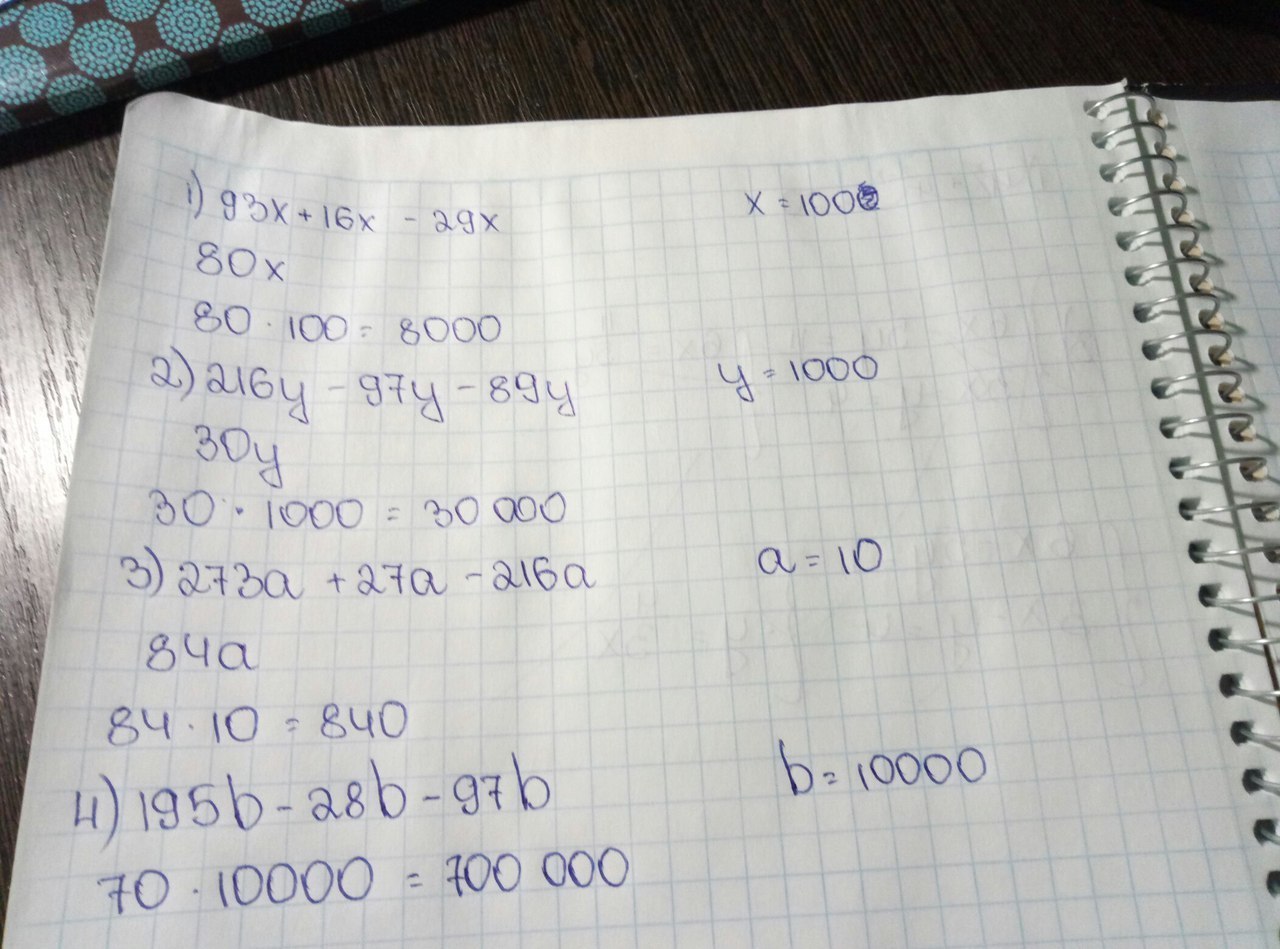 1) 93x + 16x - 29x x = 100
80x
80 · 100 = 8000
2) 216y - 97y - 89y y = 1000
30y
30 · 1000 = 30 000
3) 273a + 27a - 216a a = 10
84a
84 · 10 = 840
4) 195b - 28b - 97b b = 10000
70 · 10000 = 700 000